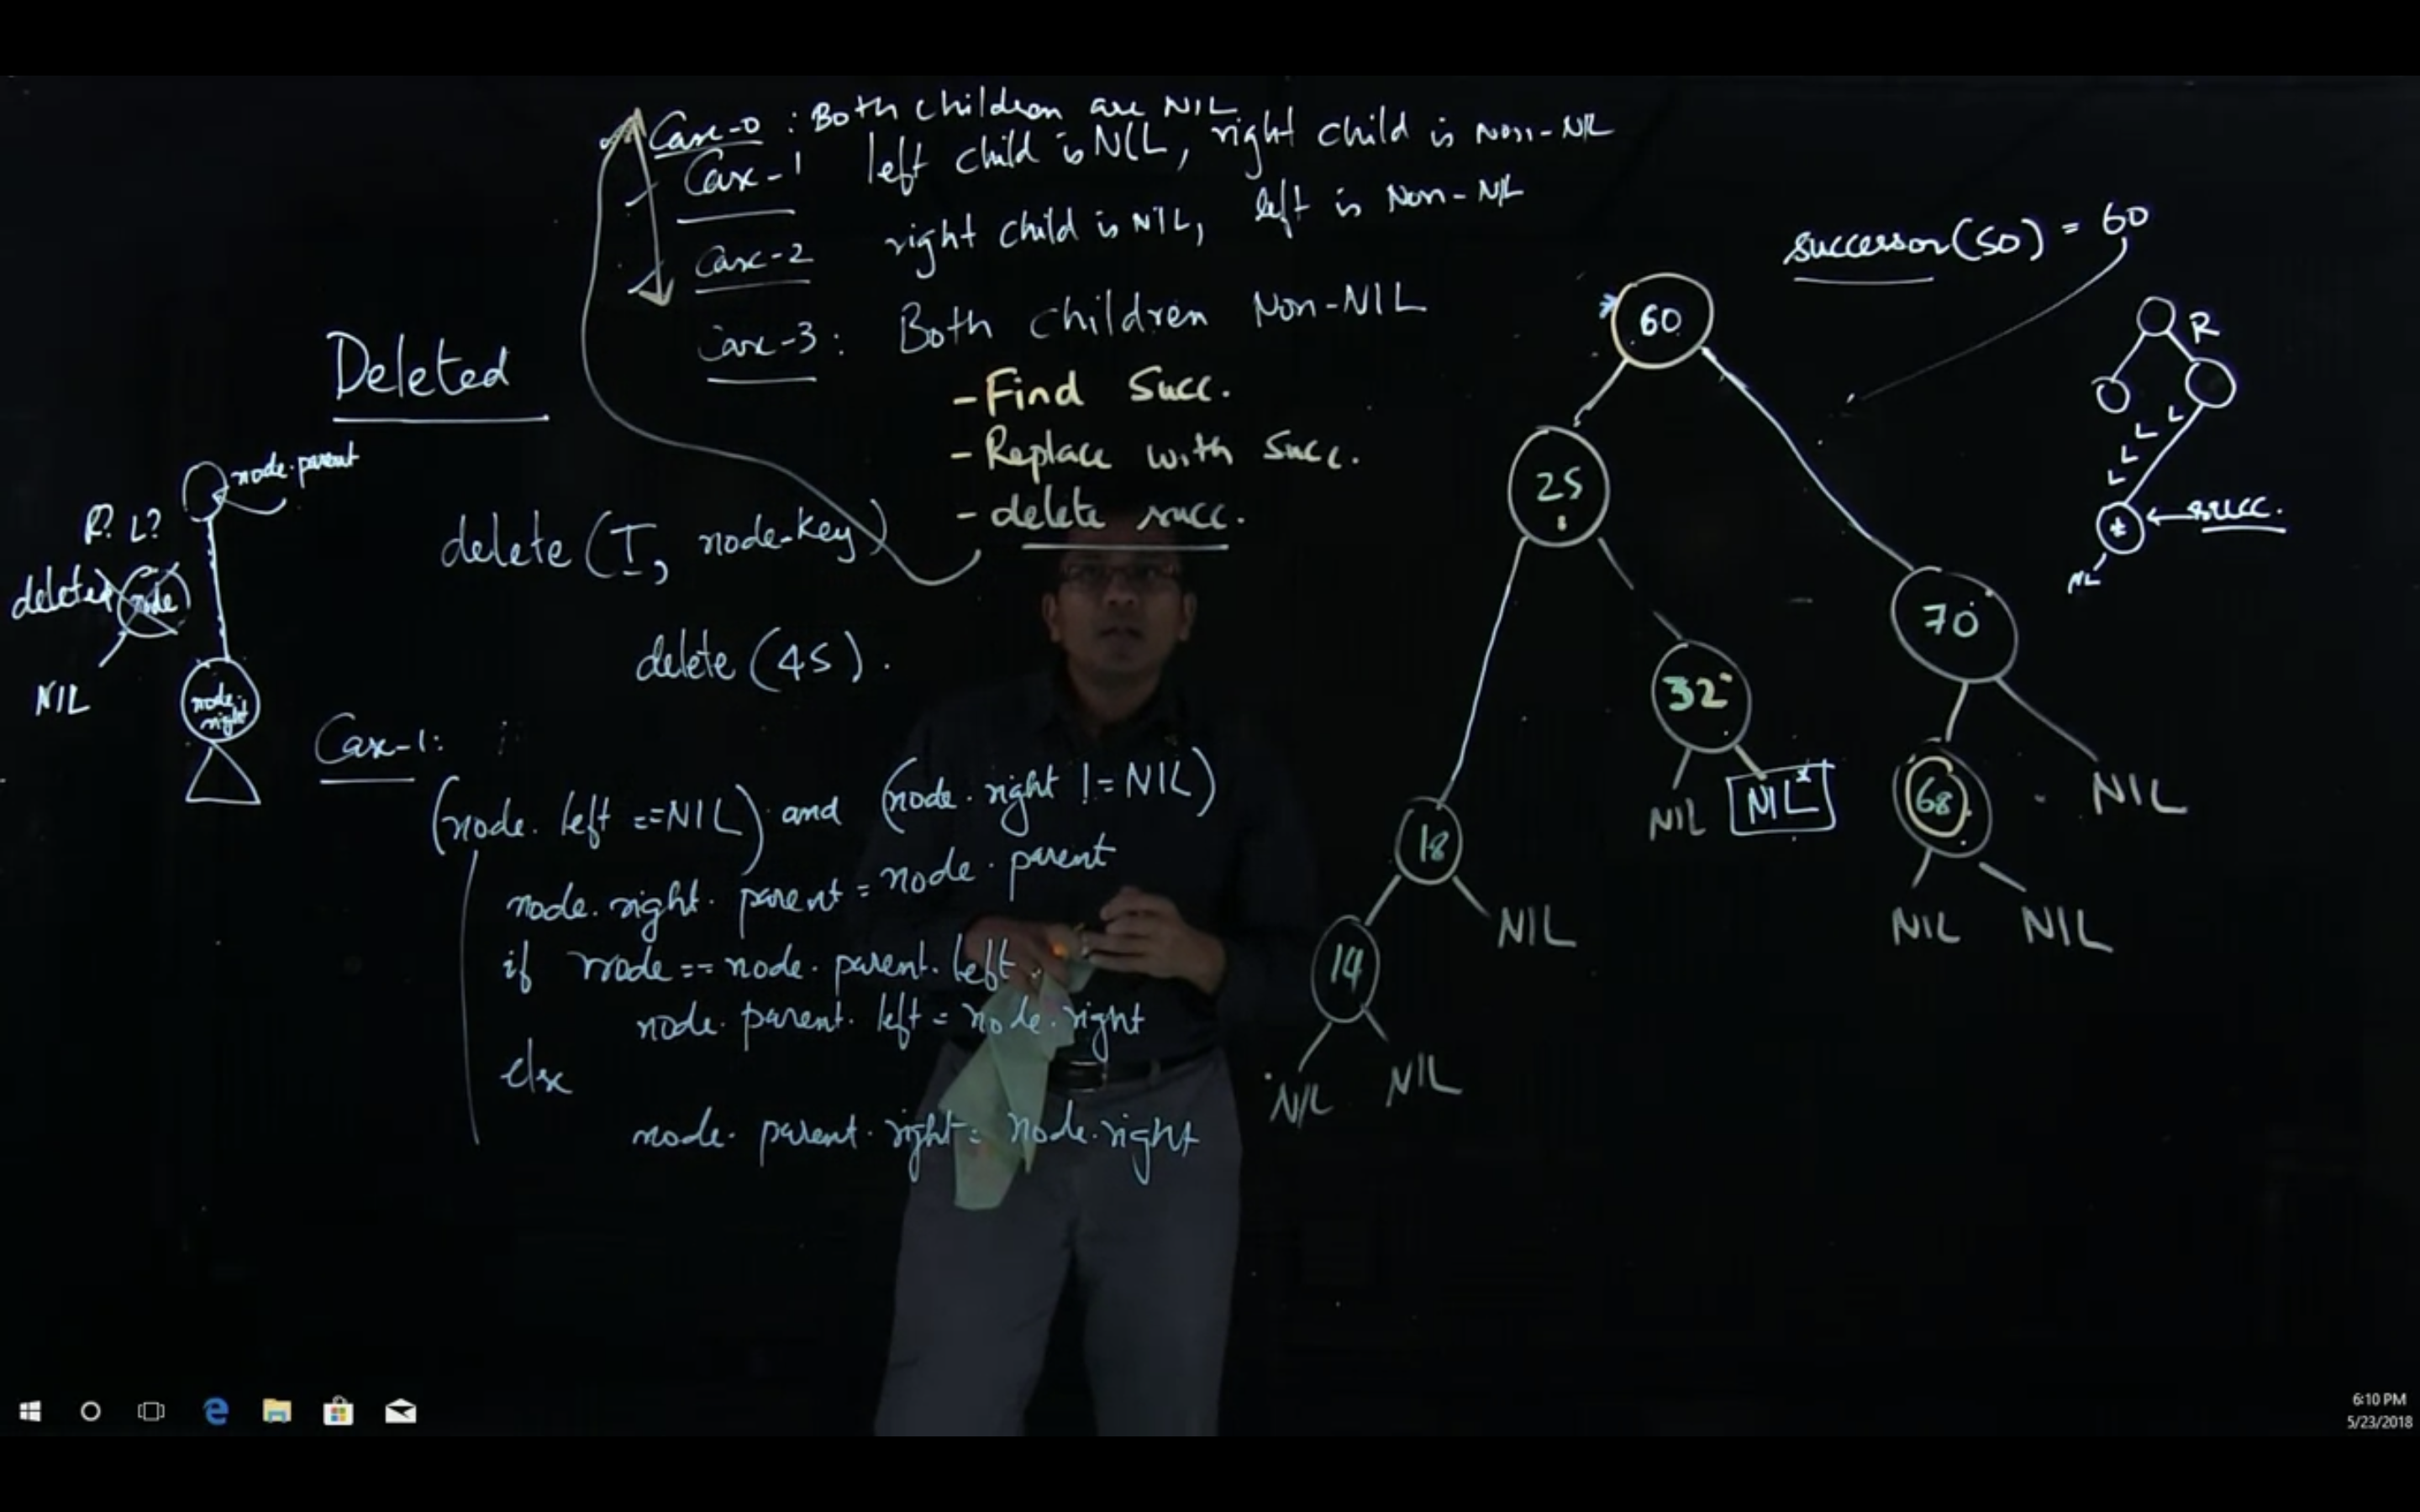 Case-0 : Both children are NIL
Case-1 left child is NIL, right child is Non-NIL
Case-2 right child is NIL, left is Non-NIL
Case-3: Both children Non-NIL
- Find Succ.
- Replace with Succ.
- delete succ.
Deleted
delete (T, node-key)
delete (45).
node.parent
R? L?
deleted node
NIL
node.right
Case-1:
(node.left ==NIL) and (node.right != NIL)
node.right.parent = node.parent
if node == node.parent.left
node.parent.left = node.right
else
node.parent.right = node.right
successor(50) = 60
60
25
70
32
NIL NIL*
68
NIL
NIL NIL
18
NIL
14
NIL NIL
R
L
L
L
L
* ← succ.
NIL
6:10 PM
5/23/2018